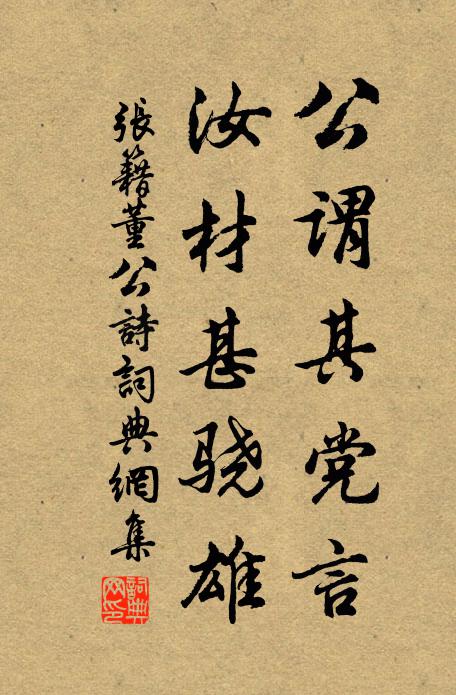 公谓其党言
汝材甚骁雄
張籍董公詩詞典網集
詞典网印